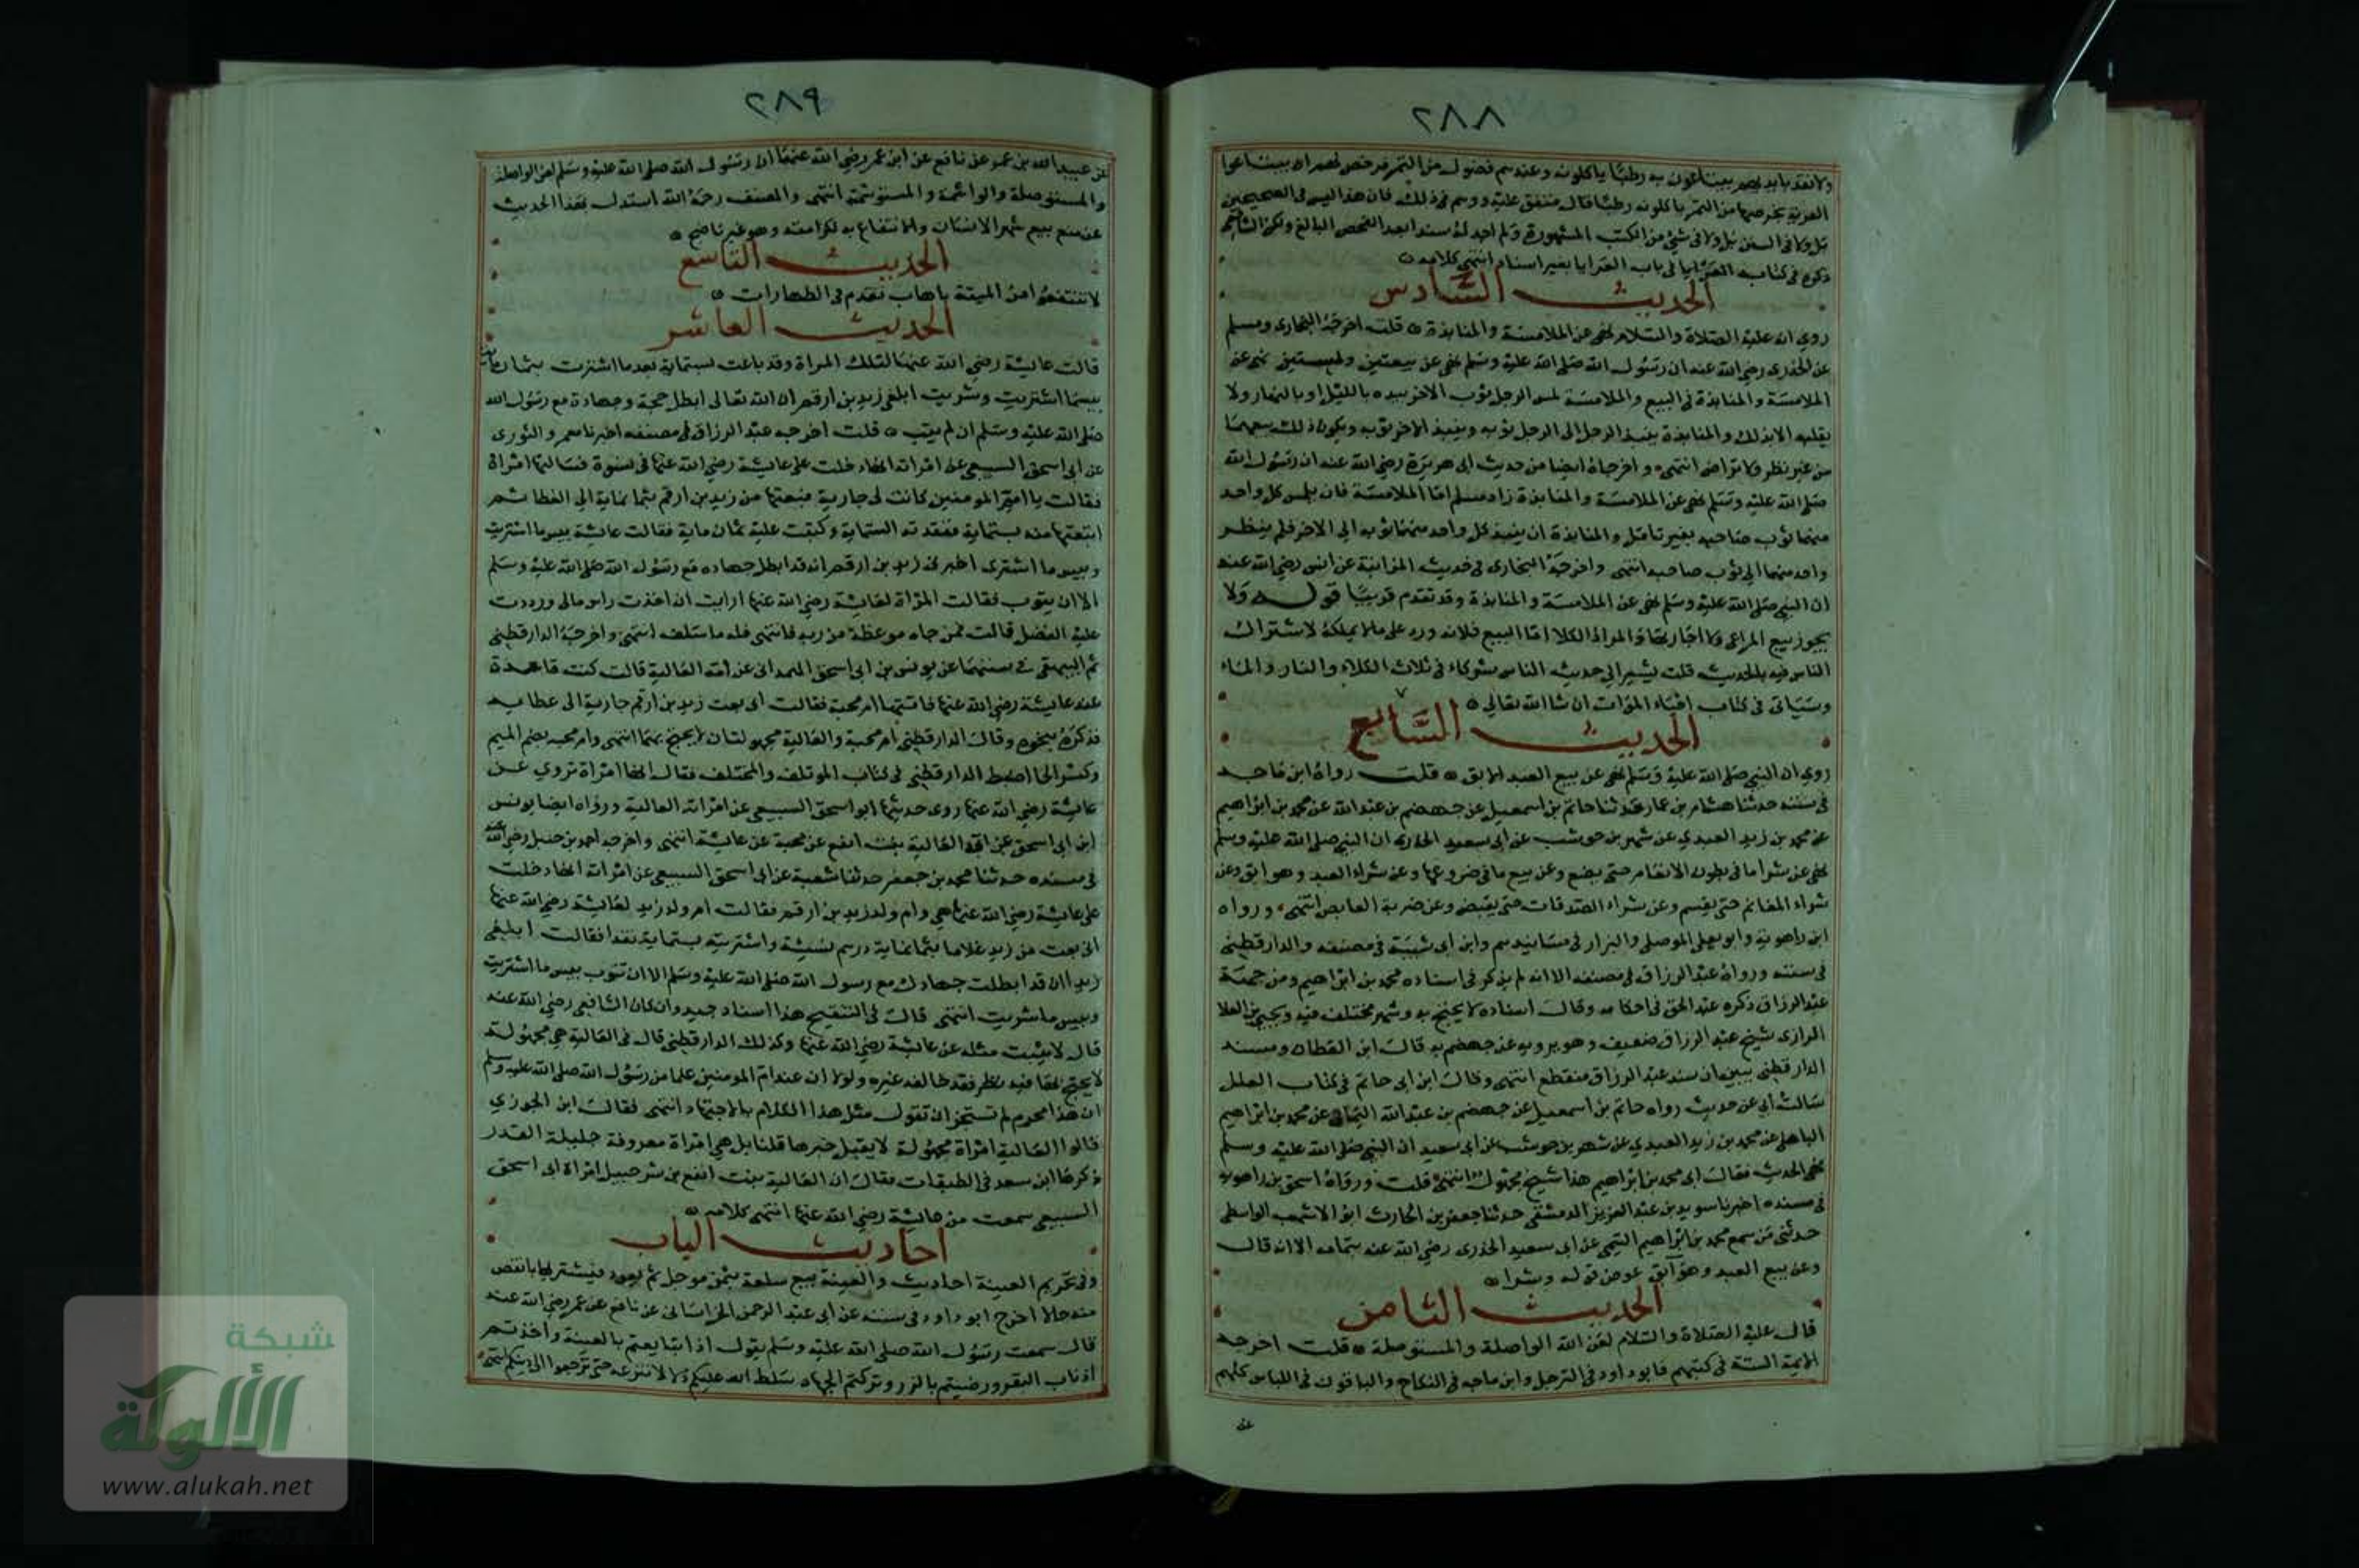 ٢٨٨
ولا نقد بايديهم يبتاعون به رطبًا ياكلونه وعندهم فضول من التمر فرخص لهم ان يبتاعوا
العرية بخرصها من التمر ياكلونه رطبًا قال متفق عليه ووهم في ذلك فان هذا ليس في الصحيحين
بل ولا في السنن بل ولا في شيء من الكتب المشهورة ولم اجد له سندا بعد الفحص البالغ ولكن الشافعي
ذكره في كتابه في باب العرايا بغير اسناد انتهى كلامه
الحديث السادس
روي انه عليه الصلاة والسلام نهى عن الملامسة والمنابذة قلت اخرجه البخاري ومسلم
عن الخدري رضي الله عنه ان رسول الله صلى الله عليه وسلم نهى عن بيعتين ولبستين نهى عن
الملامسة والمنابذة في البيع والملامسة لمس الرجل ثوب الاخر بيده بالليل او بالنهار ولا
يقلبه الا بذلك والمنابذة ينبذ الرجل الى الرجل ثوبه وينبذ الاخر ثوبه ويكون ذلك بيعهما
من غير نظر ولا تراض انتهى واخرجاه ايضا من حديث ابى هريرة رضي الله عنه ان رسول الله
صلى الله عليه وسلم نهى عن الملامسة والمنابذة زاد مسلم اما الملامسة فان يلمس كل واحد
منهما ثوب صاحبه بغير تامل والمنابذة ان ينبذ كل واحد منهما ثوبه الى الاخر فلم ينظر
واحد منهما الى ثوب صاحبه انتهى واخرجه البخاري في حديث المزابنة عن انس رضي الله عنه
ان النبي صلى الله عليه وسلم نهى عن الملامسة والمنابذة وقد تقدم قريبًا قوله ولا
يجوز بيع المراعي ولا اجارتها والمراد الكلا اما البيع فلانه ورد على مالا يملكه لاشتراك
الناس فيه بالحديث قلت يشير الى حديث الناس شركاء في ثلاث الكلاء والنار والماء
وسياتى في كتاب احياء الموات ان شا الله تعالي
الحديث السابع
روي ان النبي صلى الله عليه وسلم نهى عن بيع العبد الابق قلت رواه ابن ماجه
في سننه حدثنا هشام بن عمار حدثنا حاتم بن اسمعيل عن جهضم بن عبد الله عن محمد بن ابراهيم
عن محمد بن زيد العبدي عن شهر بن حوشب عن ابي سعيد الخدري ان النبي صلى الله عليه وسلم
نهى عن شرا ما في بطون الانعام حتى تضع وعن بيع ما في ضروعها وعن شراء العبد وهو ابق وعن
شراء المغانم حتى يقسم وعن شراء الصدقات حتى يقبض وعن ضربة الغايص انتهى ورواه
ابن راهويه وابو يعلى الموصلي والبزار في مسانيدهم وابن ابي شيبة في مصنفه والدارقطني
في سننه ورواه عبد الرزاق في مصنفه الا انه لم يذكر في اسناده محمد بن ابراهيم ومن جهة
عبد الرزاق ذكره عبد الحق في احكامه وقال اسناده لا يحتج به وشهر مختلف فيه ويحيى بن العلا
الرازي شيخ عبد الرزاق ضعيف وهو يرويه عن جهضم به قال ابن القطان وسند
الدارقطني يبين ان سند عبد الرزاق منقطع انتهى وقال ابن ابى حاتم في كتاب العلل
سالت ابي عن حديث رواه حاتم بن اسمعيل عن جهضم بن عبد الله اليماني عن محمد بن ابراهيم
الباهلي عن محمد بن زيد العبدي عن شهر بن حوشب عن ابي سعيد ان النبي صلى الله عليه وسلم
نهى الحديث فقال ابي محمد بن ابراهيم هذا شيخ مجهول انتهى قلت ورواه اسحق بن راهويه
في مسنده اخبرنا سويد بن عبد العزيز الدمشقي حدثنا جعفر بن الحارث ابو الاشهب الواسطي
حدثني من سمع محمد بن ابراهيم التيمي عن ابى سعيد الخدري رضي الله عنه بتمامه الا انه قال
وعن بيع العبد وهو آبق عوض قوله وشرا
الحديث الثامن
قال عليه الصلاة والسلام لعن الله الواصلة والمستوصلة قلت اخرجه
الايمة الستة في كتبهم فابو داود في الترجل وابن ماجه في النكاح والباقون في اللباس كلهم
عن
٢٨٩
عن عبيد الله بن عمر عن نافع عن ابن عمر رضي الله عنهما ان رسول الله صلى الله عليه وسلم لعن الواصلة
والمستوصلة والواشمة والمستوشمة انتهى والمصنف رحمه الله استدل بهذا الحديث
عن منع بيع شعر الانسان والانتفاع به لكرامته وهو غير ناهض
الحديث التاسع
لا تنتفعوا من الميتة باهاب تقدم في الطهارات
الحديث العاشر
قالت عايشة رضي الله عنها لتلك المراة وقد باعت بستماية بعد ما اشترت بثمانماية
بيسما اشتريت وشريت ابلغي زيد بن ارقم ان الله تعالى ابطل حجه وجهاده مع رسول الله
صلى الله عليه وسلم ان لم يتب قلت اخرجه عبد الرزاق في مصنفه اخبرنا معمر والثوري
عن ابي اسحق السبيعي عن امراته انها دخلت على عايشة رضي الله عنها في نسوة فسالتها امراة
فقالت يا ام المومنين كانت لي جارية فبعتها من زيد بن ارقم بثمانماية الي العطا ثم
ابتعتها منه بستماية فنقدته الستماية وكتبت عليه ثمان ماية فقالت عايشة بيس ما اشتريت
وبيس ما اشترى اخبري زيد بن ارقم انه قد ابطل جهاده مع رسول الله صلى الله عليه وسلم
الا ان يتوب فقالت المراة لعايشة رضي الله عنها ارايت ان اخذت راس مالي ورددت
عليه الفضل قالت فمن جاه موعظة من ربه فانتهى فله ما سلف انتهى واخرجه الدارقطني
ثم البيهقي في سننهما عن يونس بن ابى اسحق الهمداني عن امه العالية قالت كنت قاعدة
عند عايشة رضي الله عنها فاتتها ام محبة فقالت اني بعت زيد بن ارقم جارية الى عطايه
فذكره بنحوه وقال الدارقطني ام محبة والعالية مجهولتان لا يحتج بهما انتهى وام محبه بضم الميم
وكسر الحا اضبط الدارقطني في كتاب الموتلف والمختلف فقال انها امراة تروي عن
عايشة رضي الله عنها روى حديثها ابو اسحق السبيعي عن امراته العالية ورواه ايضا يونس
ابن ابي اسحق عن امه العالية بنت ايفع عن محبة عن عايشة انتهى واخرجه احمد بن حنبل رضي الله عنه
في مسنده حدثنا محمد بن جعفر حدثنا شعبة عن ابي اسحق السبيعي عن امراته انها دخلت
على عايشة رضي الله عنها هي وام ولد زيد بن ارقم فقالت ام ولد زيد لعايشة رضي الله عنها
اني بعت من زيد غلاما بثمانماية درهم نسيئة واشتريته بستماية نقدا فقالت ابلغي
زيدا ان قد ابطلت جهادك مع رسول الله صلى الله عليه وسلم الا ان تتوب بيس ما اشتريت
وبيس ما شريت انتهى قال في التنقيح هذا اسناد جيد وان كان الشافعي رضي الله عنه
قال لا يثبت مثله عن عايشة رضي الله عنها وكذلك الدارقطني قال في العالية هي مجهولة
لا يحتج بها فيه نظر فقد خالفه غيره ولولا ان عند ام المومنين علما من رسول الله صلى الله عليه وسلم
ان هذا محرم لم تستجز ان تقول مثل هذا الكلام بالاجتهاد انتهى فقال ابن الجوزي
قالوا العالية امراة مجهولة لا يقبل خبرها قلنا بل هي امراة معروفة جليلة القدر
ذكرها ابن سعد في الطبقات فقال ان العالية بنت ايفع بن شرحبيل امراة ابي اسحق
السبيعي سمعت من عايشة رضي الله عنها انتهى كلامه
احاديث الباب
وفي تحريم العينة احاديث والعينة بيع سلعة بثمن موجل ثم يعود فيشتريها بانقص
منه حالا اخرج ابو داود في سننه عن ابى عبد الرحمن الخراساني عن نافع عن عمر رضي الله عنه
قال سمعت رسول الله صلى الله عليه وسلم يقول اذا تبايعتم بالعينة واخذتم
اذناب البقر ورضيتم بالزرع وتركتم الجهاد سلط الله عليكم ذلا لا ينزعه حتى ترجعوا الى دينكم انتهى
شبكة
الألوكة
www.alukah.net